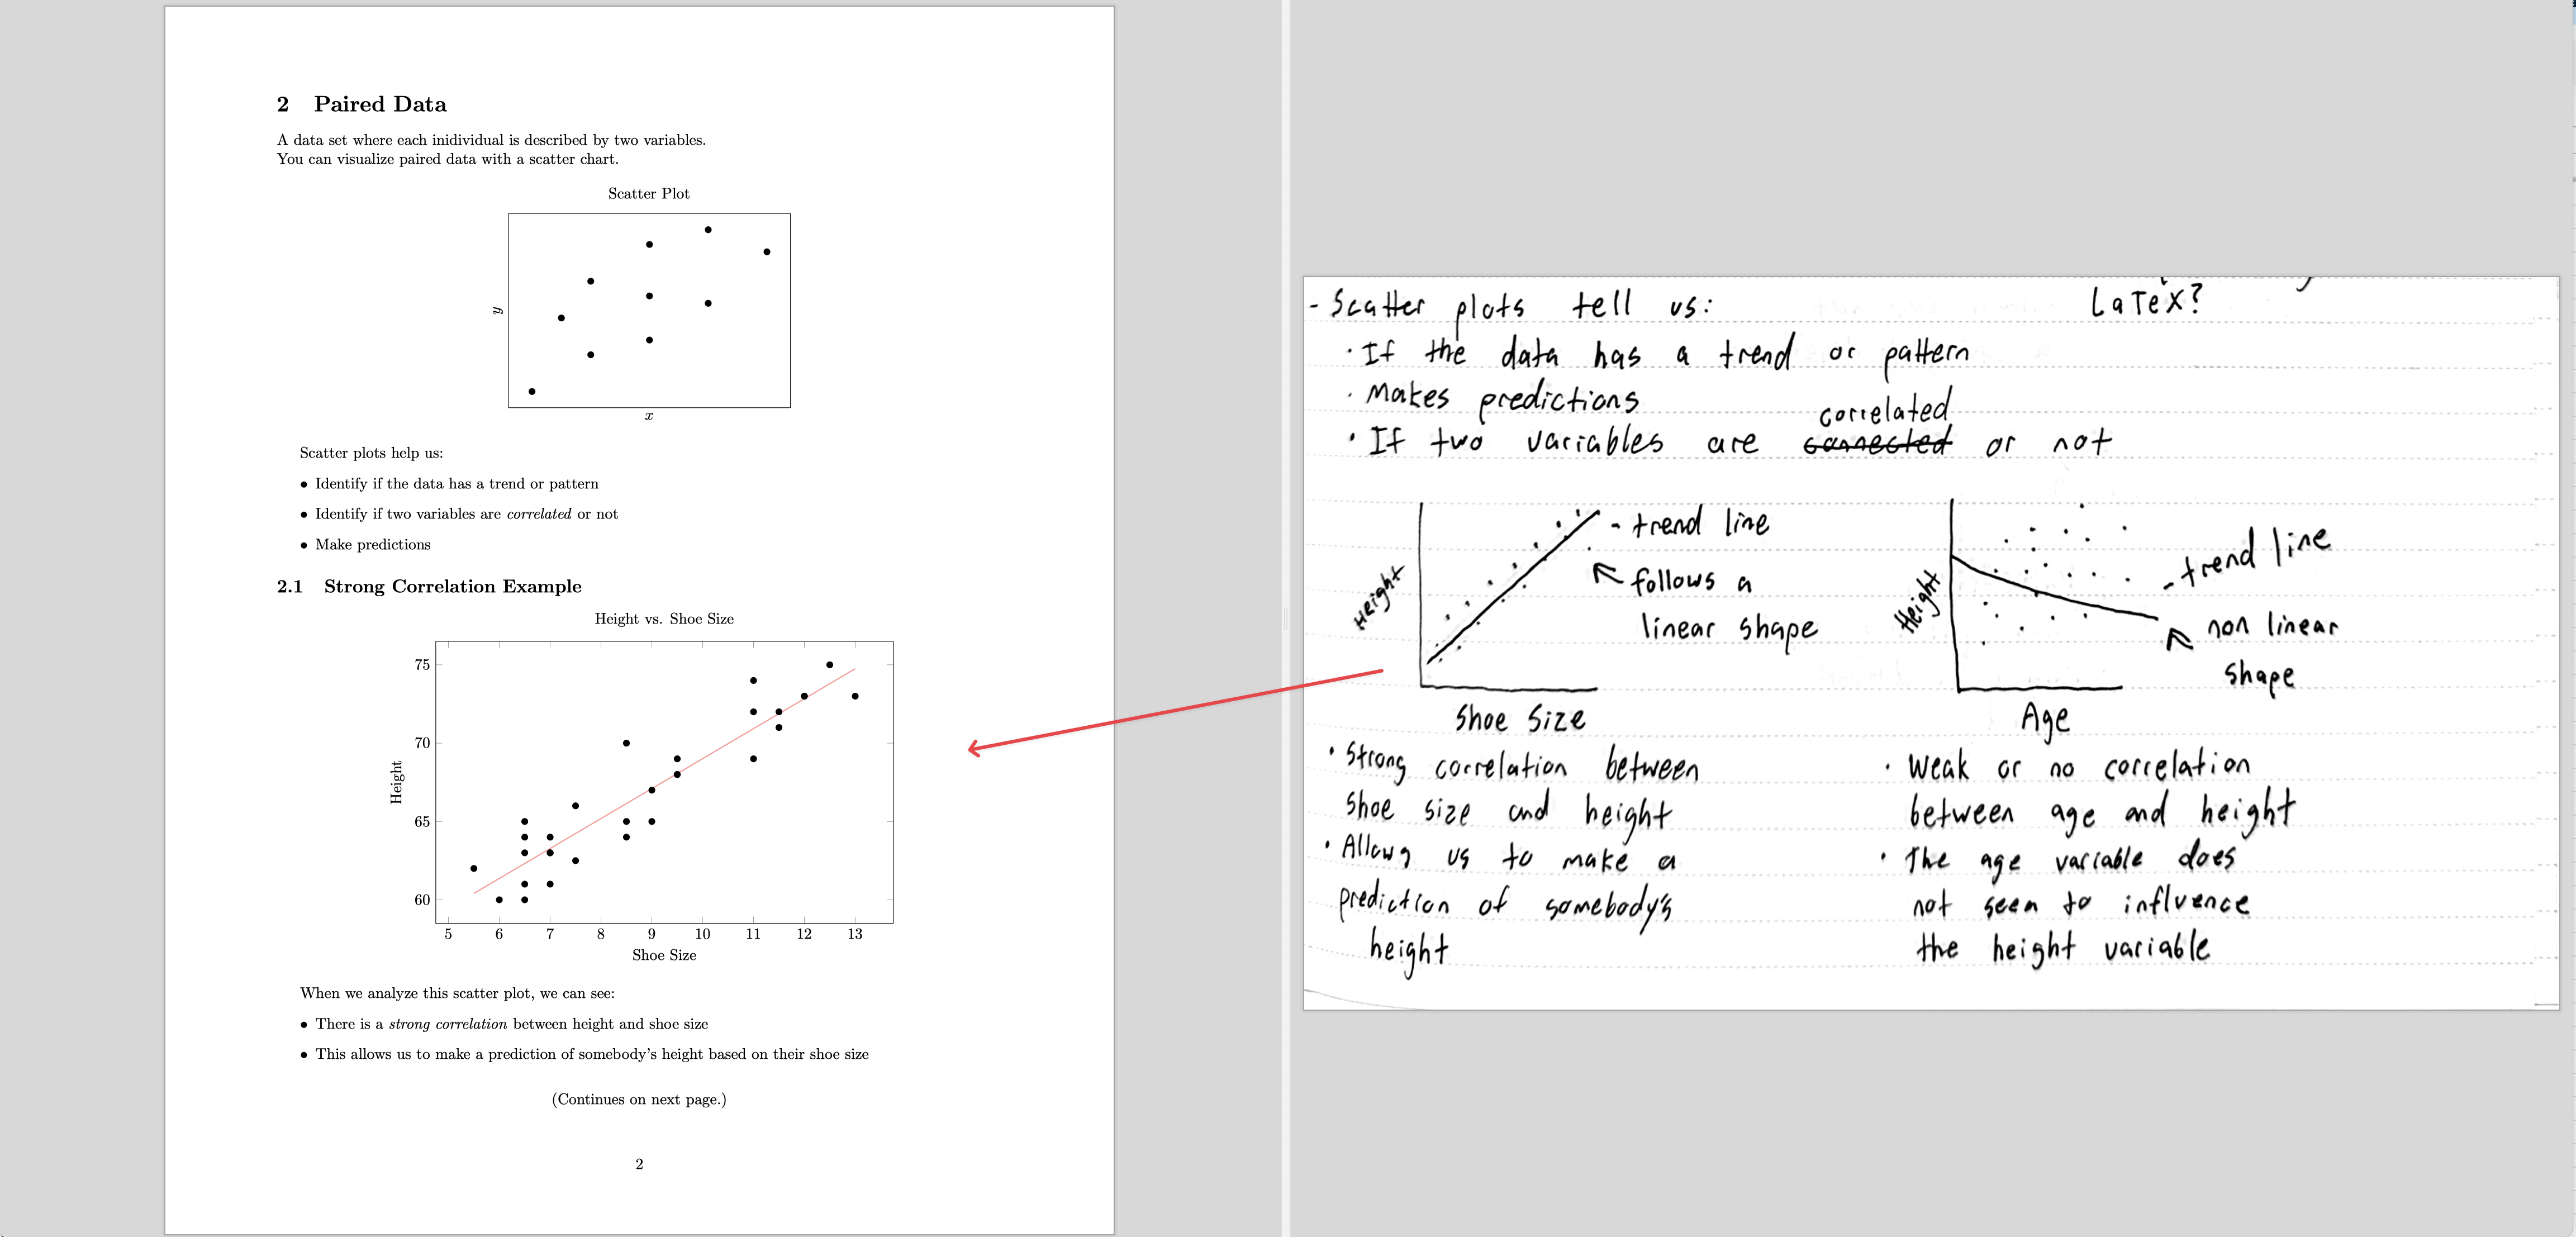 2 Paired Data
A data set where each inidividual is described by two variables.
You can visualize paired data with a scatter chart.
Scatter Plot
y
x
Scatter plots help us:
• Identify if the data has a trend or pattern
• Identify if two variables are correlated or not
• Make predictions
2.1 Strong Correlation Example
Height vs. Shoe Size
75
70
65
60
Height
5 6 7 8 9 10 11 12 13
Shoe Size
When we analyze this scatter plot, we can see:
• There is a strong correlation between height and shoe size
• This allows us to make a prediction of somebody's height based on their shoe size
(Continues on next page.)
2
- Scatter plots tell us:
LaTeX?
· If the data has a trend or pattern
· Makes predictions
correlated
· If two variables are connected or not
Height
- trend line
follows a
linear shape
Shoe Size
· Strong correlation between
shoe size and height
· Allows us to make a
prediction of somebody's
height
Height
- trend line
non linear
shape
Age
· Weak or no correlation
between age and height
· The age variable does
not seem to influence
the height variable